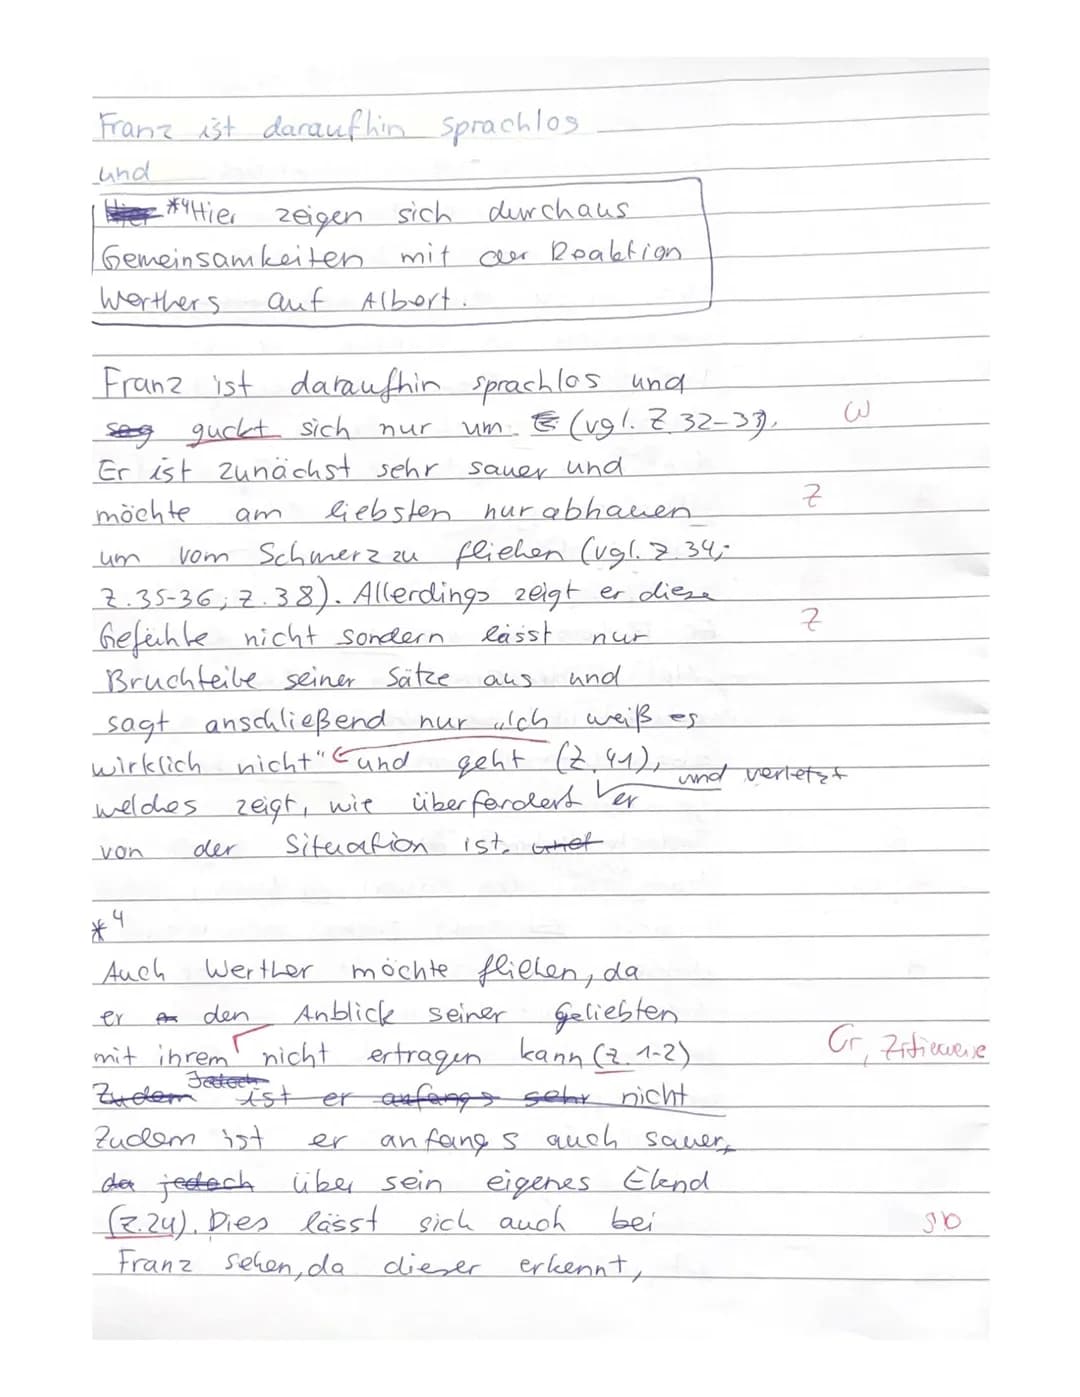 Franz ist daraufhin sprachlos
und
Hier *4 Hier zeigen sich durchaus
Gemeinsamkeiten mit der Reaktion
Werthers auf Albert.
Franz ist daraufhin sprachlos und
sag guckt sich nur um (vgl. Z 32-33). W
Er ist zunächst sehr sauer und
möchte am liebsten nur abhauen Z
um vom Schmerz zu fliehen (vgl. Z 34;
Z. 35-36; Z. 38). Allerdings zeigt er diese
Gefühle nicht sondern lässt nur Z
Bruchteile seiner Sätze aus und
sagt anschließend nur „Ich weiß es
wirklich nicht" und geht (Z. 41), und verletzt
welches zeigt, wie überfordert er
von der Situation ist. und
*4
Auch Werther möchte fliehen, da
er den Anblick seiner Geliebten
mit ihrem nicht ertragen kann (Z. 1-2) Gr, Zitierweise
Zudem Jedoch ist er anfangs sehr nicht
Zudem ist er anfangs auch sauer,
da jedoch über sein eigenes Elend
(Z. 24). Dies lässt sich auch bei sb
Franz sehen, da dieser erkennt,